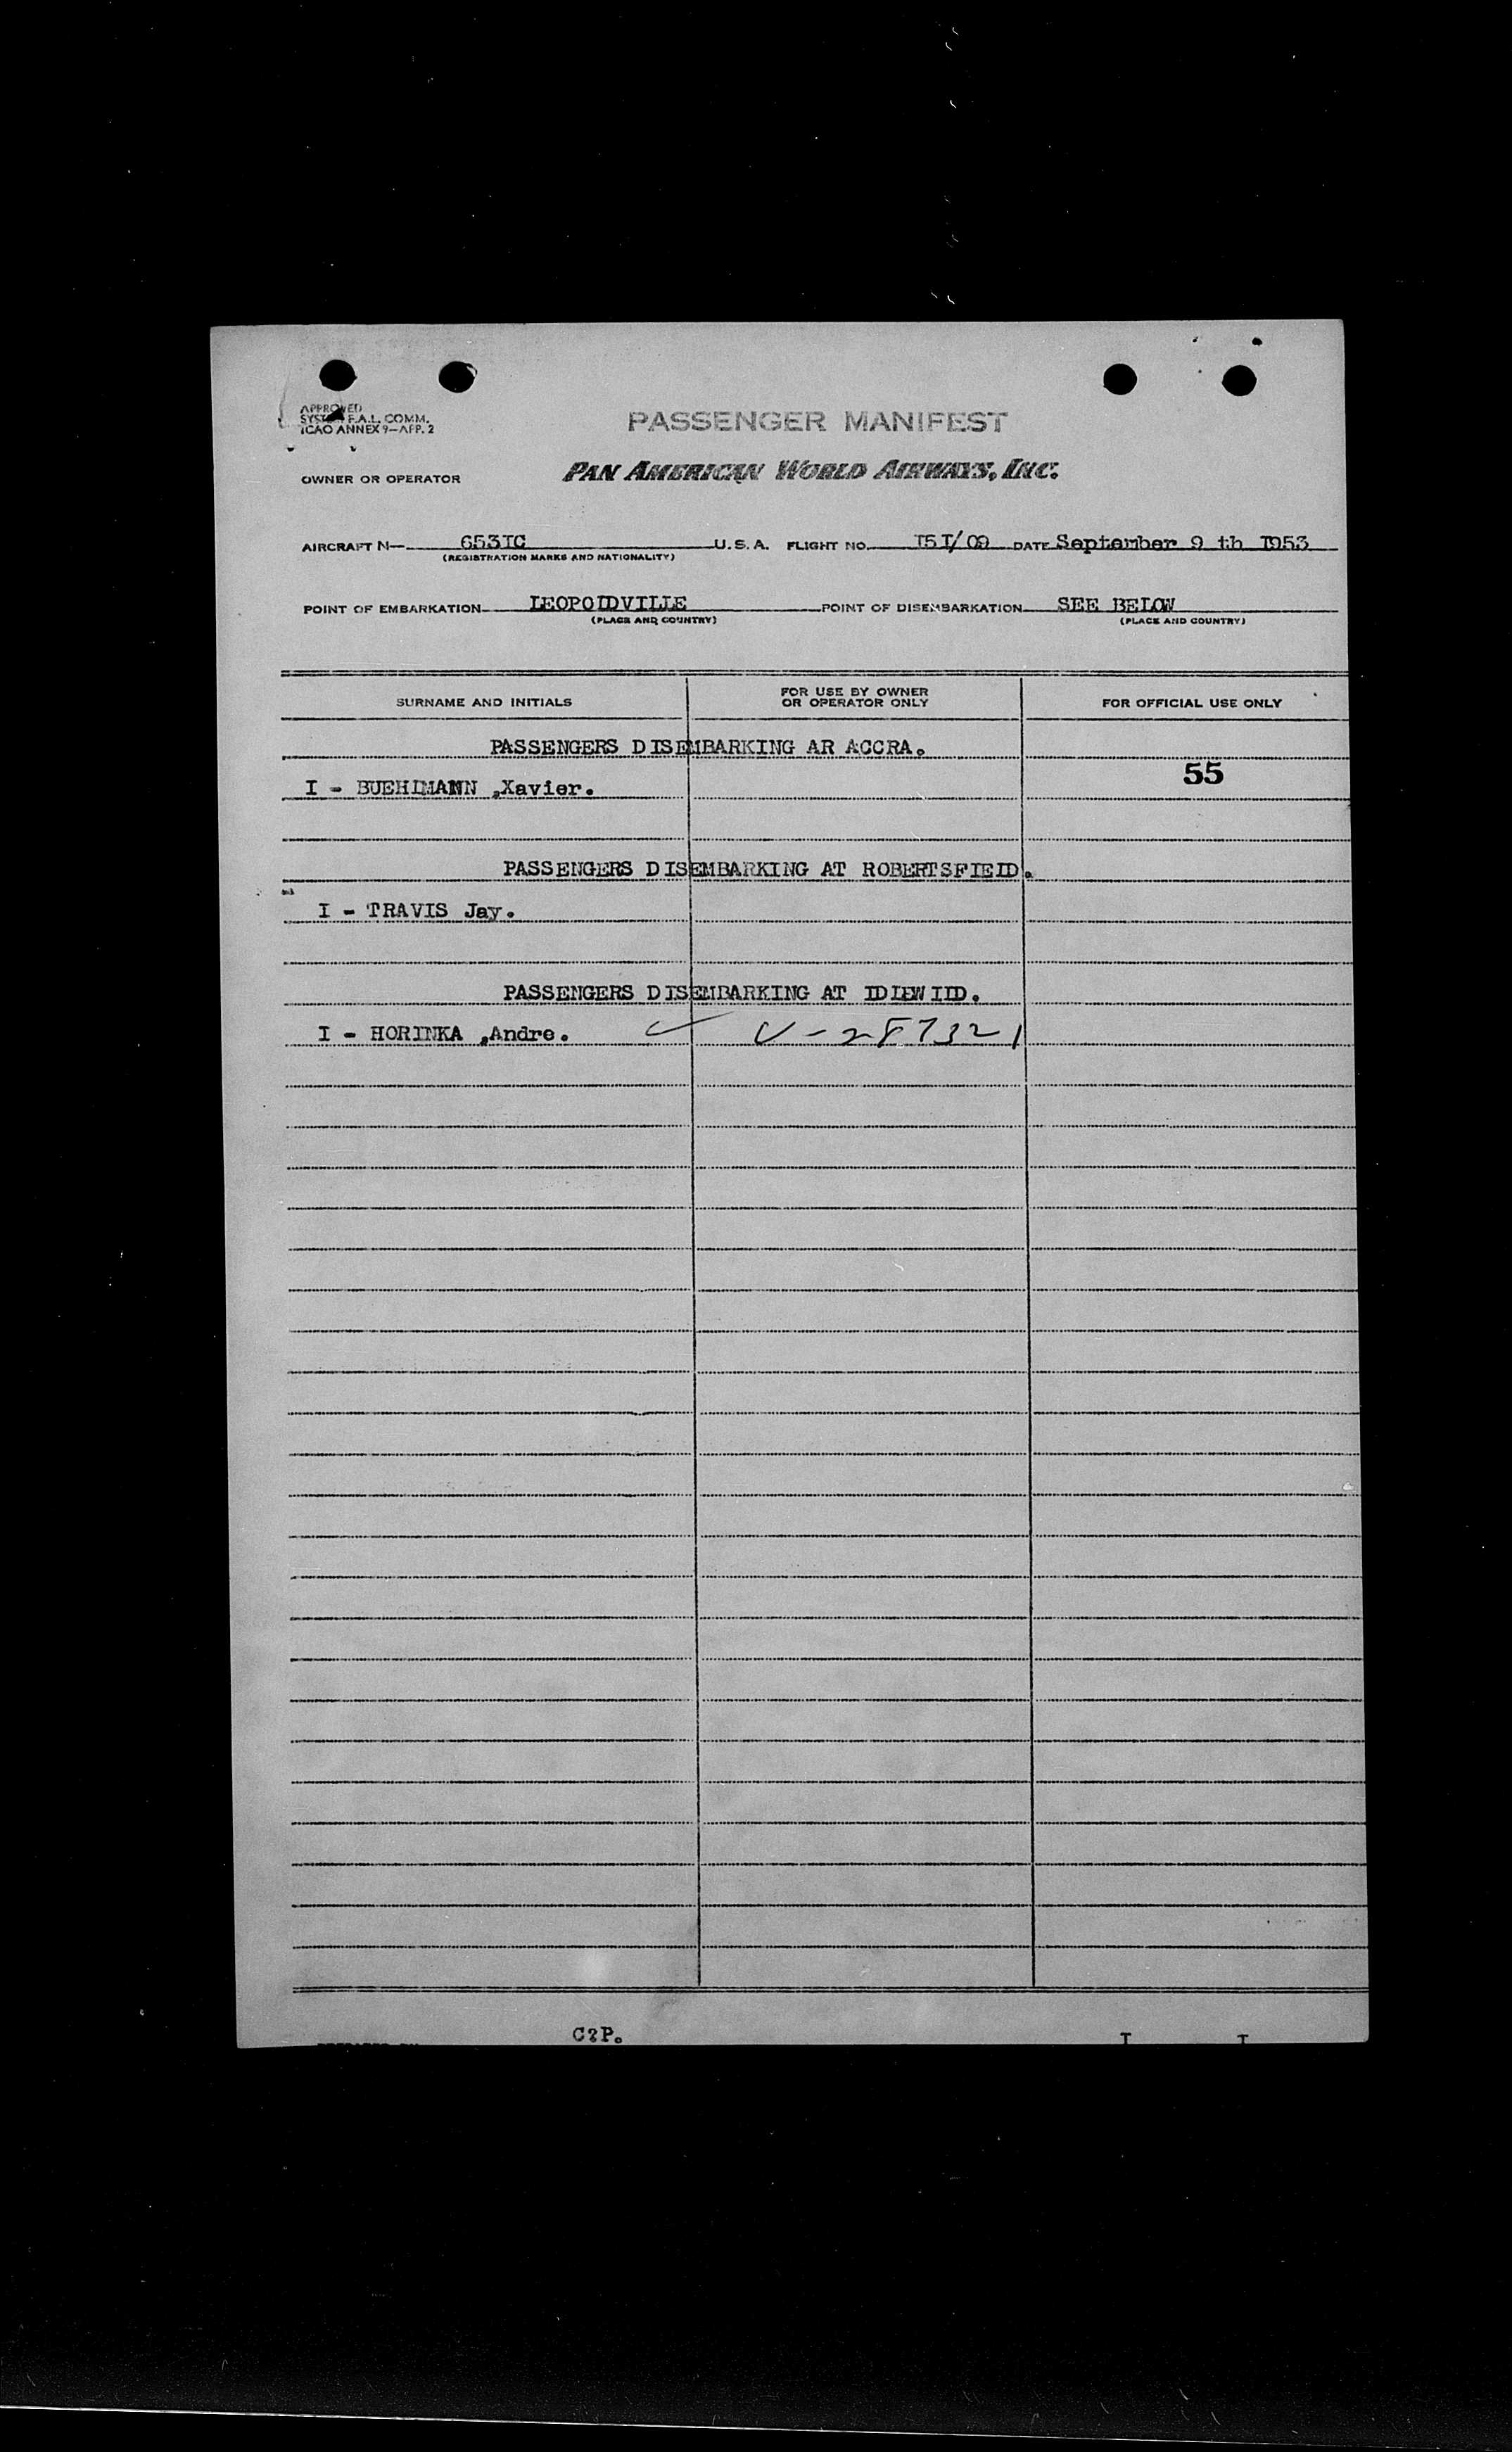 APPROVED
SYSTEM F.A.L. COMM.
ICAO ANNEX 9—APP. 2
PASSENGER MANIFEST
OWNER OR OPERATOR PAN AMERICAN WORLD AIRWAYS, INC.
AIRCRAFT N— 653IC U.S.A. FLIGHT NO. I5I/09 DATE September 9 th I953
(REGISTRATION MARKS AND NATIONALITY)
POINT OF EMBARKATION LEOPOLDVILLE POINT OF DISEMBARKATION SEE BELOW
(PLACE AND COUNTRY) (PLACE AND COUNTRY)
SURNAME AND INITIALS FOR USE BY OWNER OR OPERATOR ONLY FOR OFFICIAL USE ONLY
PASSENGERS DISEMBARKING AR ACCRA.
55
I - BUEHLMANN ,Xavier.
PASSENGERS DISEMBARKING AT ROBERTSFIELD.
I - TRAVIS Jay.
PASSENGERS DISEMBARKING AT IDLEWILD.
I - HORINKA ,Andre. V-287321
C?P. I I